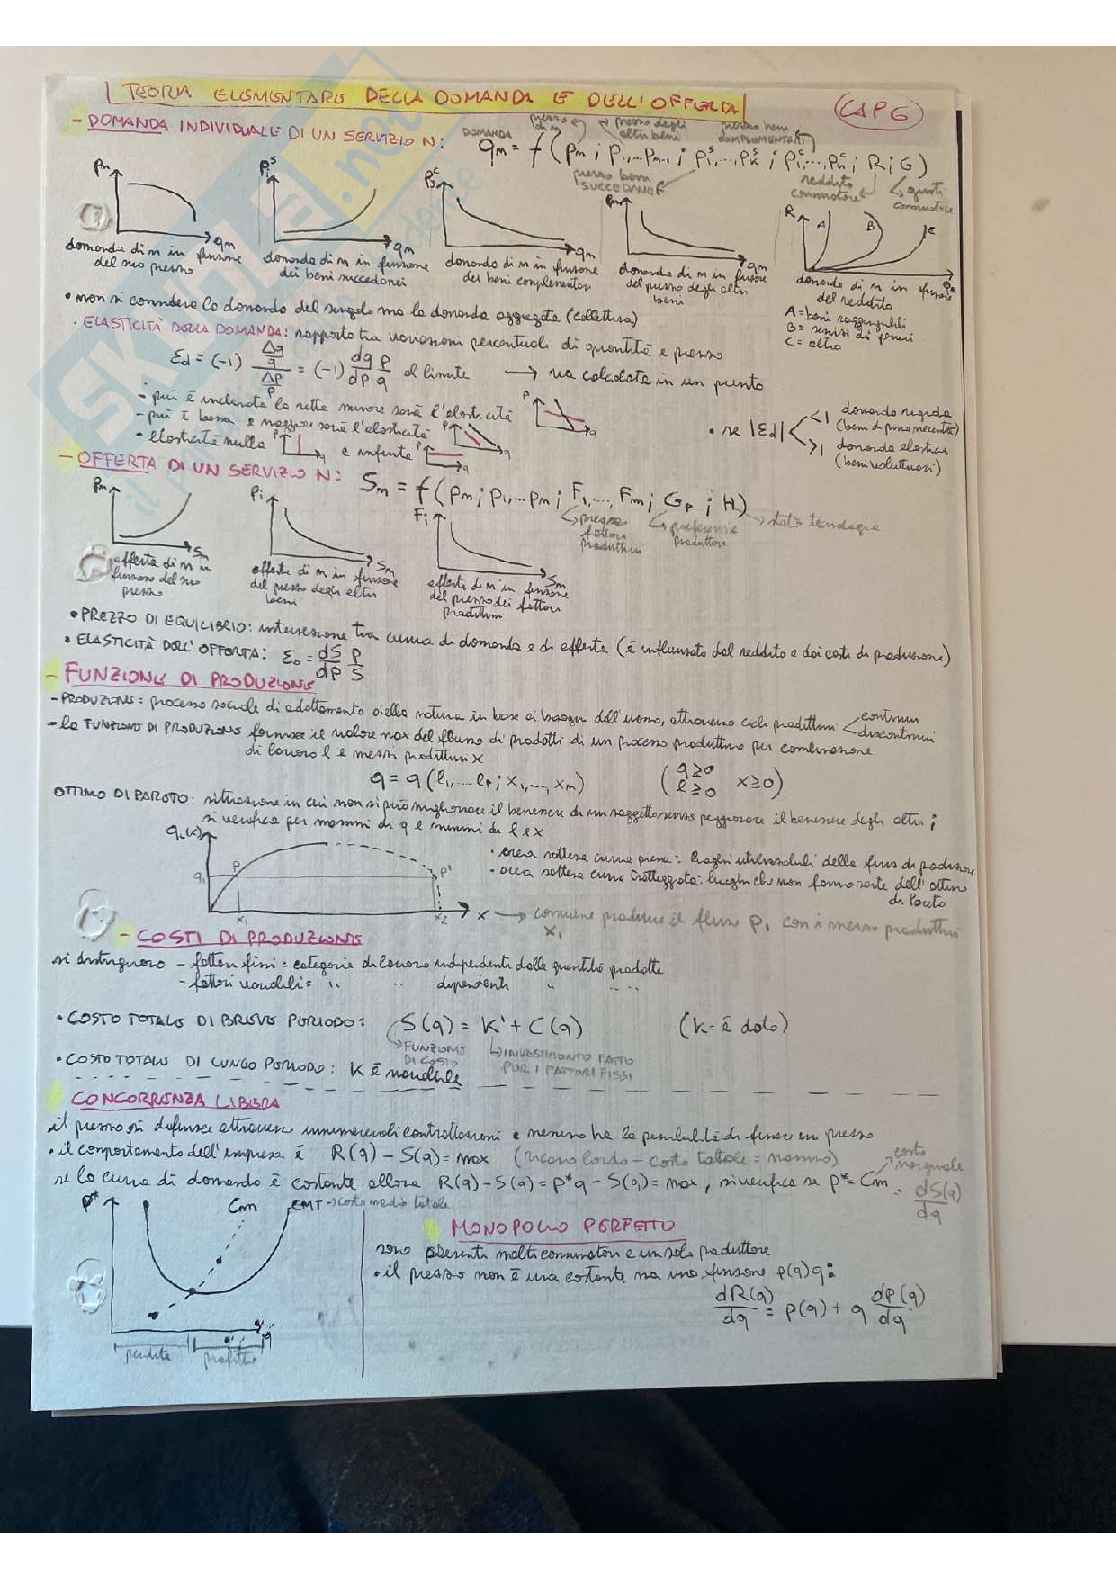 TEORIA ELEMENTARE DELLA DOMANDA E DELL'OFFERTA
(CAP 6)
- DOMANDA INDIVIDUALE DI UN SERVIZIO N:
DOMANDA
prezzo di n
prezzo degli altri beni
prezzo beni complementari
qm = f (pm ; p1,...pm-1 ; p1^s,...,pk^s ; p1^c,...,pn^c ; R ; G)
prezzo beni SUCCEDANEI
reddito consumatore
gusti consumatore
pm
qm
domanda di n in funzione del suo prezzo
pi^s
qm
domanda di n in funzione dei beni succedanei
qm
domanda di n in funzione dei beni complementari
pm
qm
domanda di n in funzione del prezzo degli altri beni
R
A
B
C
domanda di n in funzione del reddito
A = beni
B = servizi di
C = altro
• non si considera la domanda del singolo ma la domanda aggregata (collettiva)
• ELASTICITÀ DELLA DOMANDA: rapporto tra variazioni percentuali di quantità e prezzo
Ed = (-1) Δq/q / Δp/p = (-1) dq/dp p/q al limite → va calcolata in un punto
- più è inclinata la retta minore sarà l'elasticità
- più è bassa e maggiore sarà l'elasticità
• elasticità nulla e infinita
• se |Ed|
<1 domanda rigida (beni di prima necessità)
>1 domanda elastica (beni voluttuosi)
- OFFERTA DI UN SERVIZIO N: Sm = f (pm ; p1,...pm ; F1,..., Fm ; Gp ; H)
prezzo fattori produttivi
preferenze produttore
stato tecnologia
pm
Sm
offerta di n in funzione del suo prezzo
pi
Sm
offerta di n in funzione del prezzo degli altri beni
Fi
Sm
offerta di n in funzione del prezzo dei fattori produttivi
• PREZZO DI EQUILIBRIO: intersezione tra curva di domanda e di offerta (è influenzato dal reddito e dai costi di produzione)
• ELASTICITÀ DELL'OFFERTA: Eo = dS/dP P/S
- FUNZIONE DI PRODUZIONE
- PRODUZIONE: processo sociale di adattamento della natura in base ai bisogni dell'uomo, attraverso cicli produttivi
continui
discontinui
- la FUNZIONE DI PRODUZIONE fornisce il valore max del flusso di prodotti di un processo produttivo per combinazione
di lavoro l e mezzi produttivi x
q = q (l1,....lp ; x1,..., xm) (q≥0 l≥0 x≥0)
OTTIMO DI PARETO: situazione in cui non si può migliorare il benessere di un soggetto senza peggiorare il benessere degli altri ;
si verifica per massimi di q e minimi di l e x
q(x)
q1
P
P'
x1
x2
x
• area sottesa curva piena: luoghi utilizzabili della funz di produzione
• area sottesa curva tratteggiata: luoghi che non fanno parte dell'ottimo di Pareto
→ conviene produrre il flusso P1 con i mezzi produttivi
x1
- COSTI DI PRODUZIONE
si distinguono - fattori fissi = categorie di lavoro indipendenti dalla quantità prodotta
- fattori variabili = " " dipendenti " " "
• COSTO TOTALE DI BREVE PERIODO: S(q) = K + C(q) (K è dato)
FUNZIONE DI COSTO
INVESTIMENTO FATTO PER I FATTORI FISSI
• COSTO TOTALE DI LUNGO PERIODO: K è variabile
CONCORRENZA LIBERA
il prezzo si definisce attraverso innumerevoli contrattazioni e nessuno ha la possibilità di fissare un prezzo
• il comportamento dell'impresa è R(q) - S(q) = max (ricavo lordo - costo totale = massimo)
se la curva di domanda è costante allora R(q) - S(q) = p*q - S(q) = max, si verifica se p* = Cm = dS(q)/dq
costo marginale
p*
Cm
CMT → costo medio totale
q
perdite
profitto
MONOPOLIO PERFETTO
sono presenti molti consumatori e un solo produttore
• il prezzo non è una costante ma una funzione p(q)q:
dR(q)/dq = p(q) + q dp(q)/dq